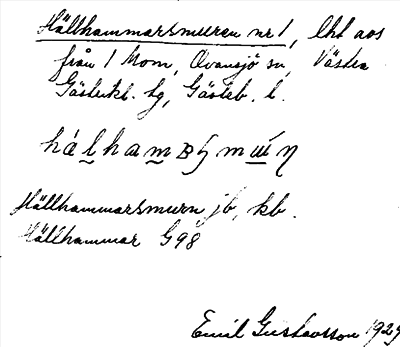 Hällhammarsmuren nr 1, lht aos
från 1 Mom, Ovansjö sn, Västra
Gästrikl. tg, Gävleb. l.
Hällhammarsmurn jb, kb.
Hällhammar G98
Emil Gustavsson 1929